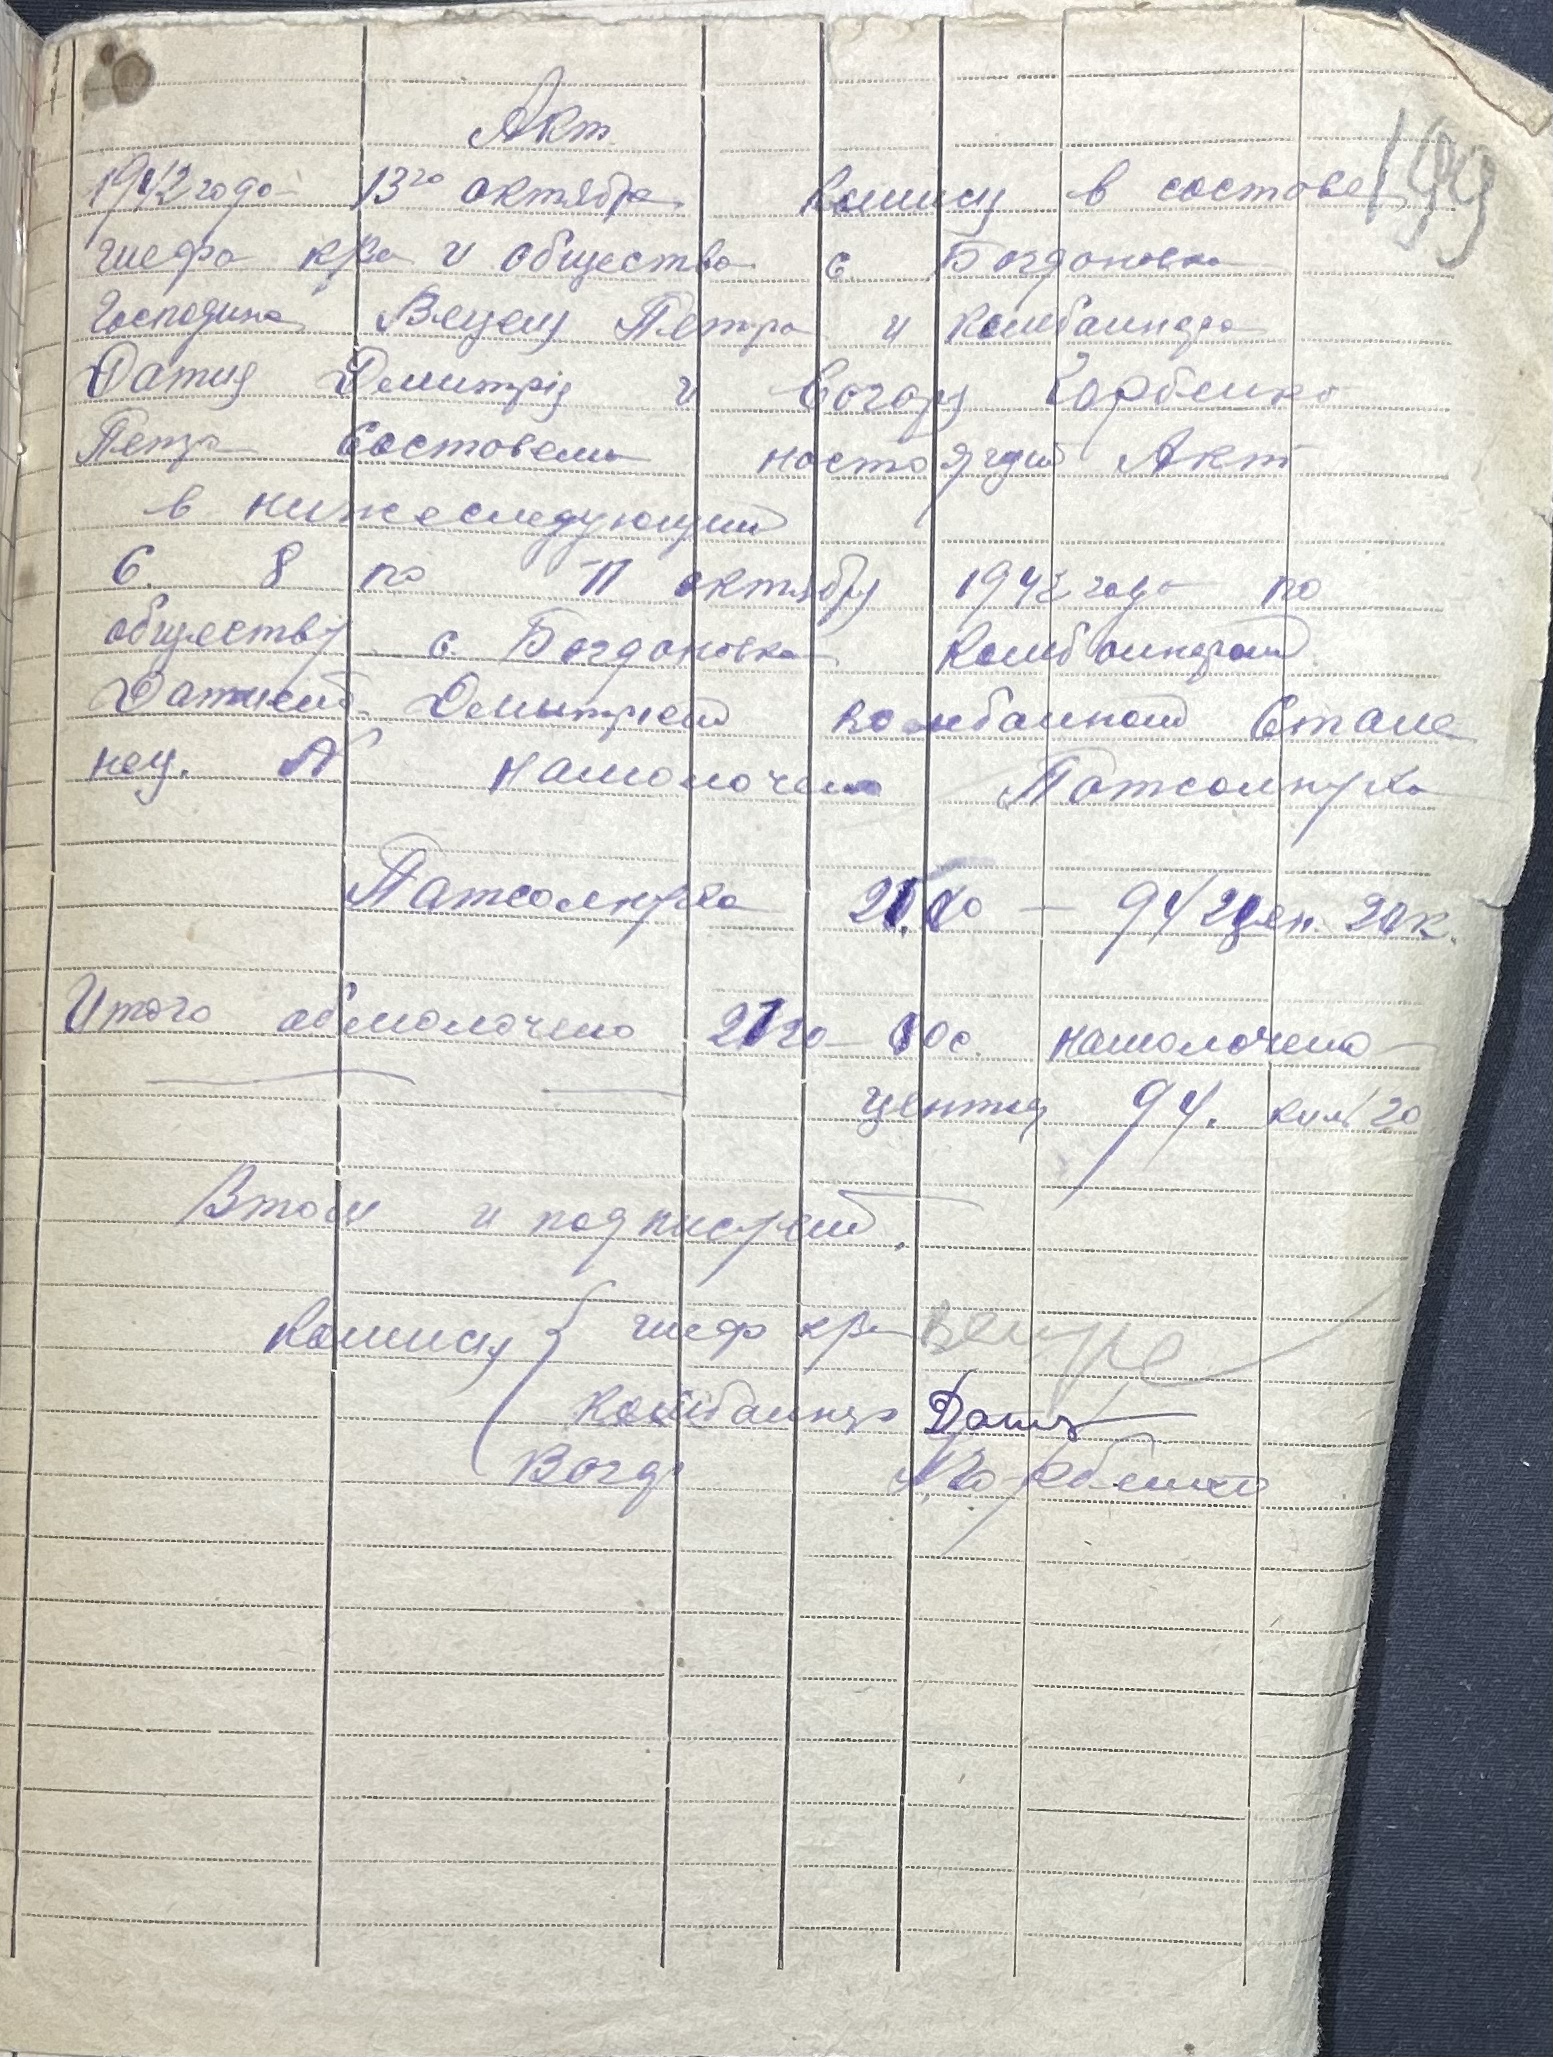 Акт
199
1942 года 13го октября комисия в состове
шефа к/ва и общества с. Богдановка
Господина Венцеля Петра и комбайнера
Датия Дмитрия и Горбенко
Петра состовели настоящий Акт
в нижеследующим
с. 8 по 11 октября 1942 года по
обществу с. Богдановка комбайнером
Датием Дмытрием комбайном Стале
нец. № намолочено Патсолнуха
Патсолнуха 94 цен. 20 к.
Итого обмолочено намолочено
центня 94. кил 20
Втом и подписуем.
Комисия шеф к/ва
комбайнер Датия
Вогар П. Горбенко